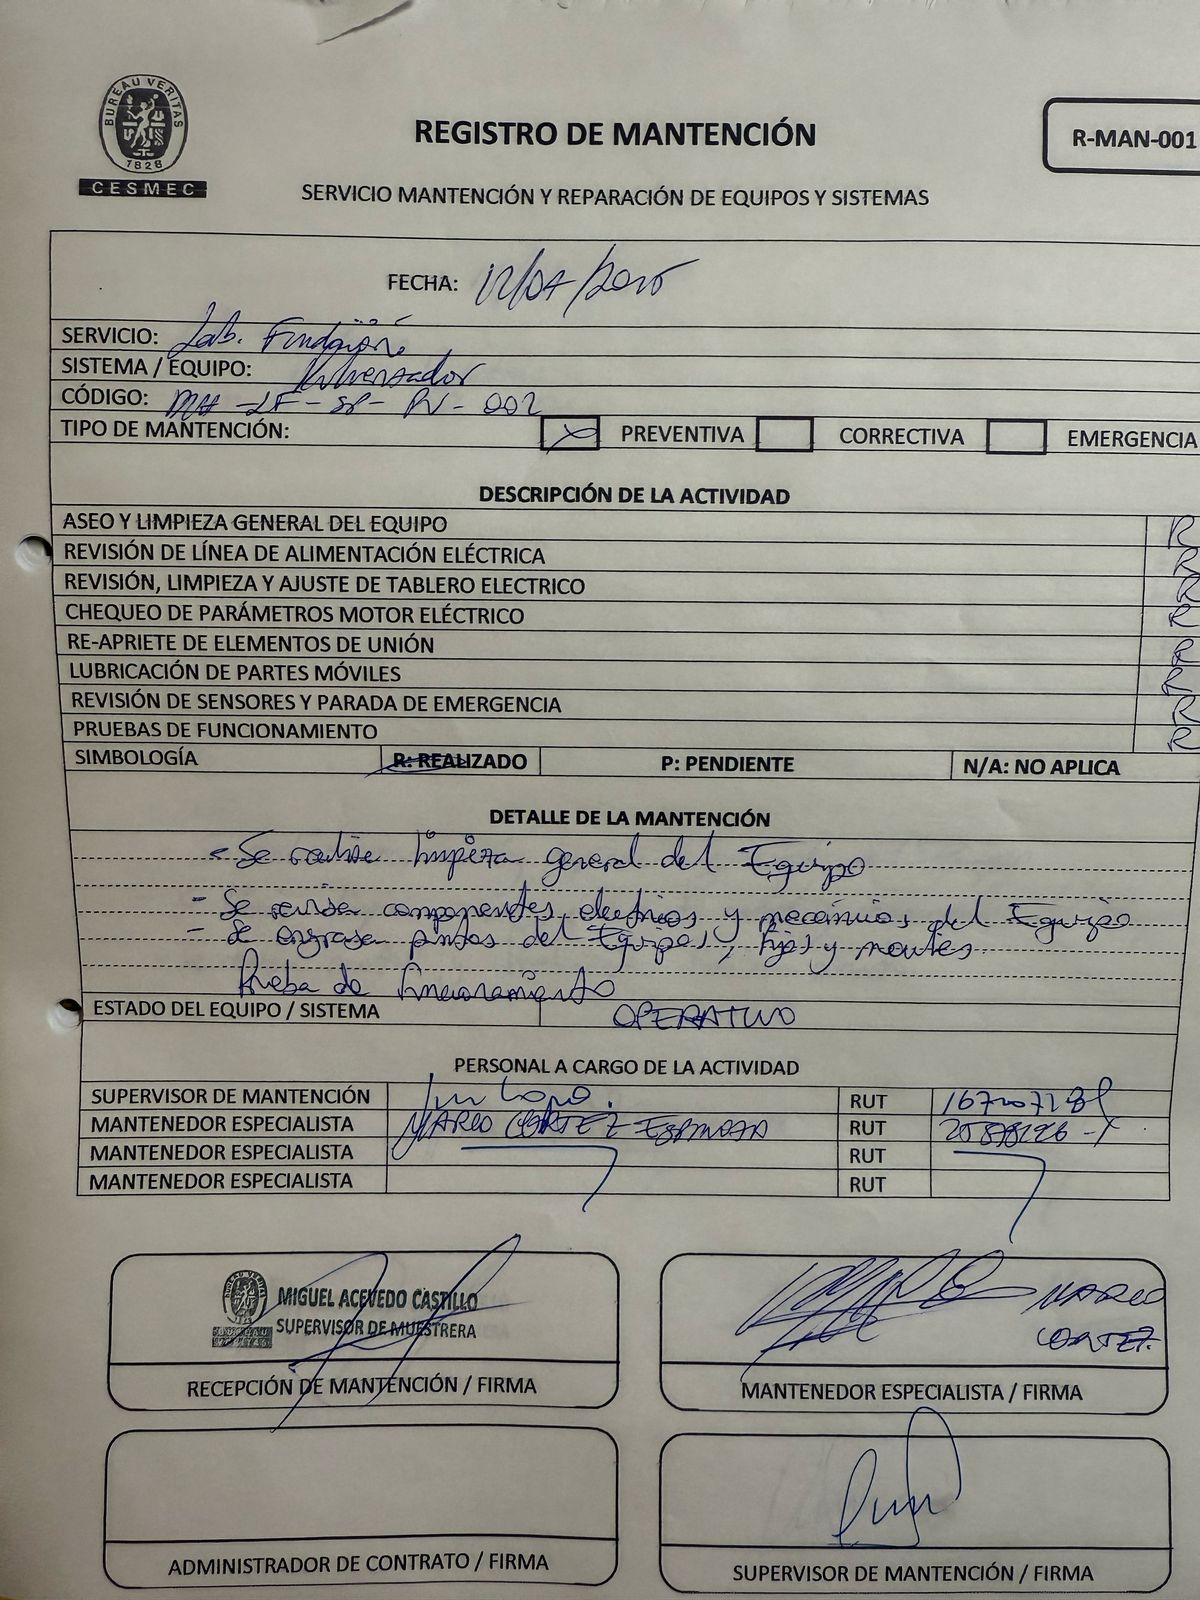 BUREAU VERITAS
1828
CESMEC
REGISTRO DE MANTENCIÓN
R-MAN-001
SERVICIO MANTENCIÓN Y REPARACIÓN DE EQUIPOS Y SISTEMAS
FECHA:
SERVICIO: Lab. Fundición
SISTEMA / EQUIPO: Pulverizador
CÓDIGO: MH-LF-SP-PV-002
TIPO DE MANTENCIÓN: X PREVENTIVA CORRECTIVA EMERGENCIA
DESCRIPCIÓN DE LA ACTIVIDAD
ASEO Y LIMPIEZA GENERAL DEL EQUIPO R
REVISIÓN DE LÍNEA DE ALIMENTACIÓN ELÉCTRICA R
REVISIÓN, LIMPIEZA Y AJUSTE DE TABLERO ELECTRICO R
CHEQUEO DE PARÁMETROS MOTOR ELÉCTRICO R
RE-APRIETE DE ELEMENTOS DE UNIÓN R
LUBRICACIÓN DE PARTES MÓVILES R
REVISIÓN DE SENSORES Y PARADA DE EMERGENCIA R
PRUEBAS DE FUNCIONAMIENTO R
SIMBOLOGÍA R: REALIZADO P: PENDIENTE N/A: NO APLICA
DETALLE DE LA MANTENCIÓN
- Se realiza limpieza general del Equipo
- Se revisa componentes electricos y mecanicos del Equipo
- Se engrasa puntos del Equipo, fijos y
Prueba de funcionamiento
ESTADO DEL EQUIPO / SISTEMA OPERATIVO
PERSONAL A CARGO DE LA ACTIVIDAD
SUPERVISOR DE MANTENCIÓN RUT
MANTENEDOR ESPECIALISTA MARCO CORTEZ ESPINOZA RUT
MANTENEDOR ESPECIALISTA RUT
MANTENEDOR ESPECIALISTA RUT
MIGUEL ACEVEDO CASTILLO
SUPERVISOR DE MUESTRERA
RECEPCIÓN DE MANTENCIÓN / FIRMA
MARCO
CORTEZ.
MANTENEDOR ESPECIALISTA / FIRMA
ADMINISTRADOR DE CONTRATO / FIRMA
SUPERVISOR DE MANTENCIÓN / FIRMA